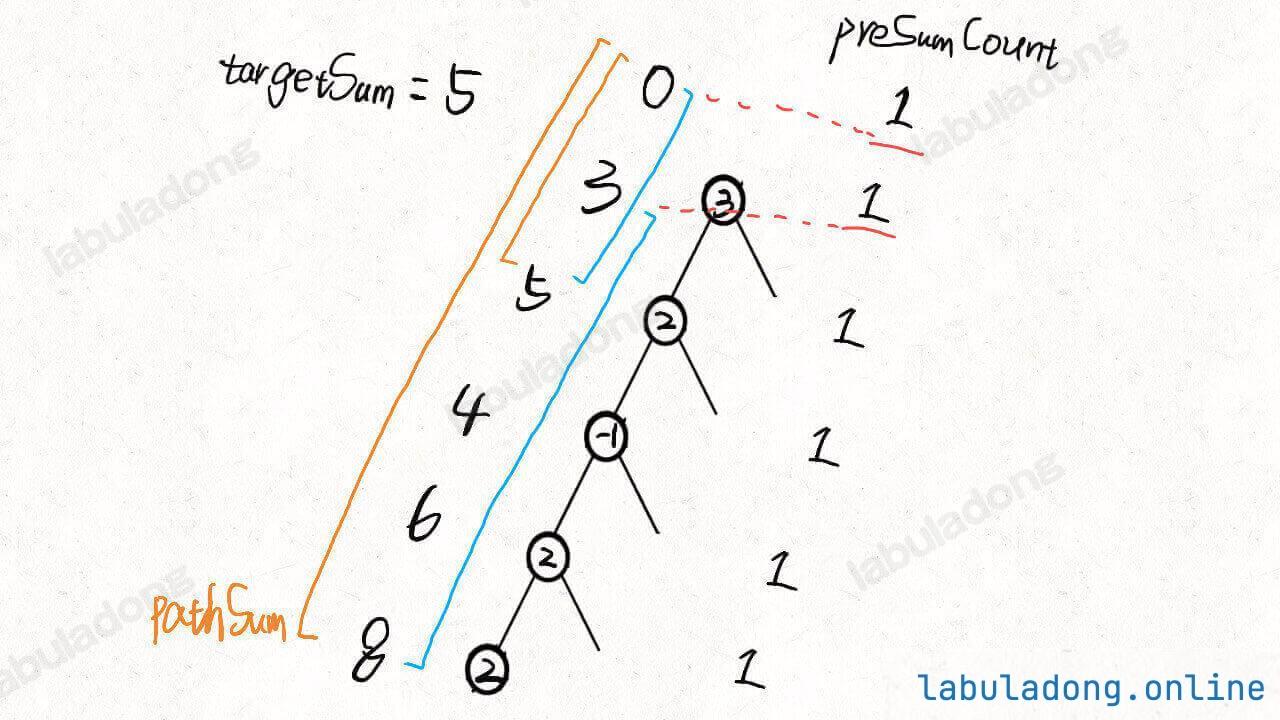 preSumCount
targetSum = 5
0
1
3
3
1
5
2
1
4
-1
1
6
2
1
pathSum
8
2
1
labuladong
labuladong
labuladong
labuladong
labuladong
labuladong.online